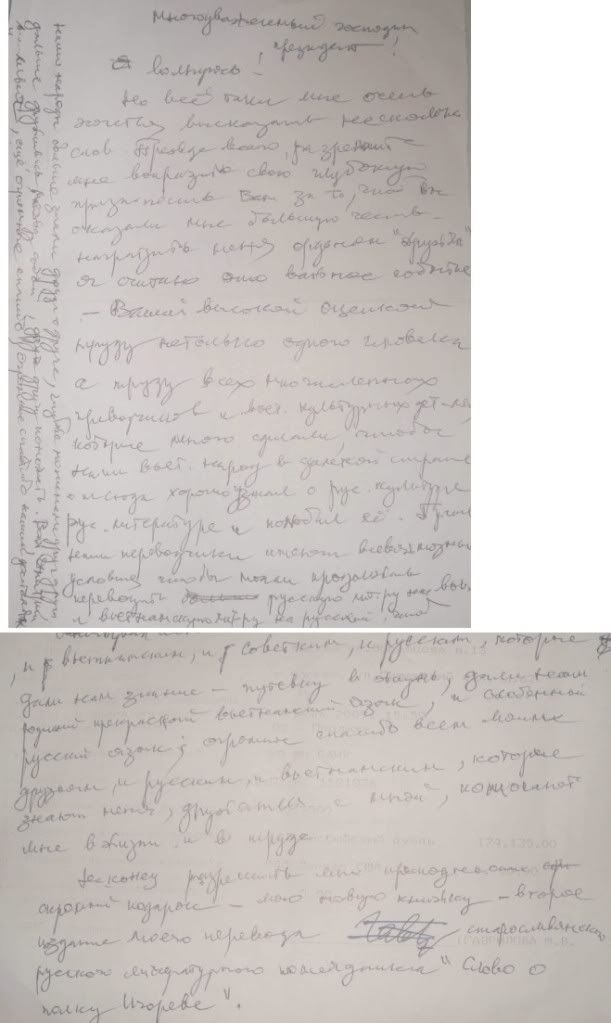 Многоуважаемый господин
президент!
волнуюсь!
Но всё таки мне очень
хочется высказать несколько
слов. Прежде всего, разрешите
мне выразить свою глубокую
признательность Вам за то, что вы
оказали мне большую честь –
наградить меня орденом "Дружбы"
я считаю это важное событие
– Вашей высокой оценкой
труду не только одного человека
а труду всех многочисленных
переводчиков и вьет. культурных деят-лей
которые много сделали, чтобы
наш вьет. народ в далекой стране
хорошо знал о рус. культуре
рус. литературе и полюбил её. Пусть
наши переводчики имеют всевозможные
условия, чтобы могли продолжать
переводить русскую лит-ру на вьет.
и вьетнамскую лит-ру на русский, чтоб
наши народы больше знали друг о друге, глубже понимали друг друга
дальше дружились между собой и друг другу помогать.
ещё огромное спасибо, огромное спасибо нашим учителям
, и вьетнамским, и советским, и русским, которые
дали нам знание – путевку в жизнь, дали нам
родной прекрасный вьетнамский язык, и особенный
русский язык; огромное спасибо всем моим
друзьям, и русским, и вьетнамским, которые
знают меня, дружатся с мной, помогают
мне в жизни и в труде
Наконец разрешите мне преподнести
скромный подарок – мою новую книжку – второе
издание моего перевода старославянского
русского литературного памятника "Слово о
полку Игореве".